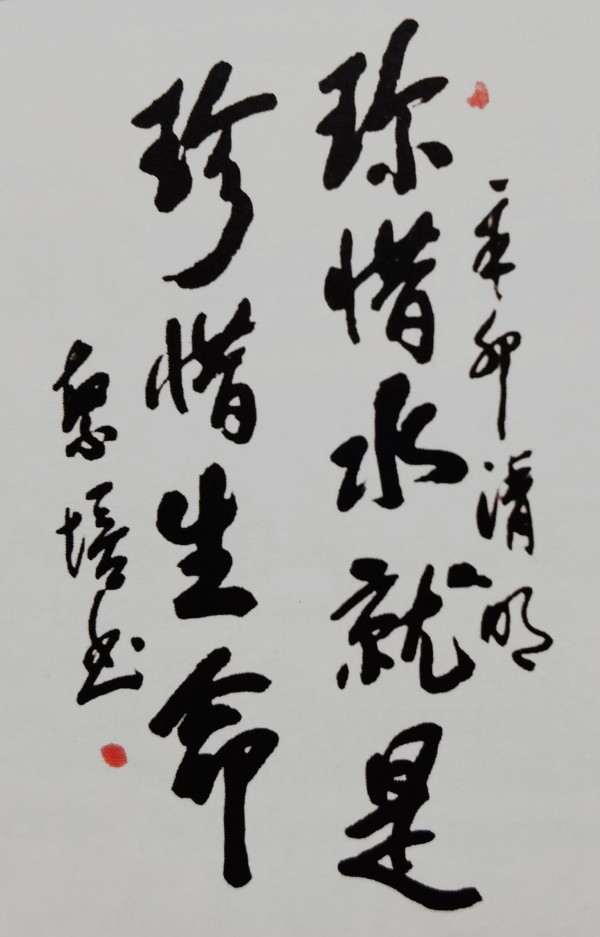 辛卯清明
珍惜水就是
珍惜生命
培书